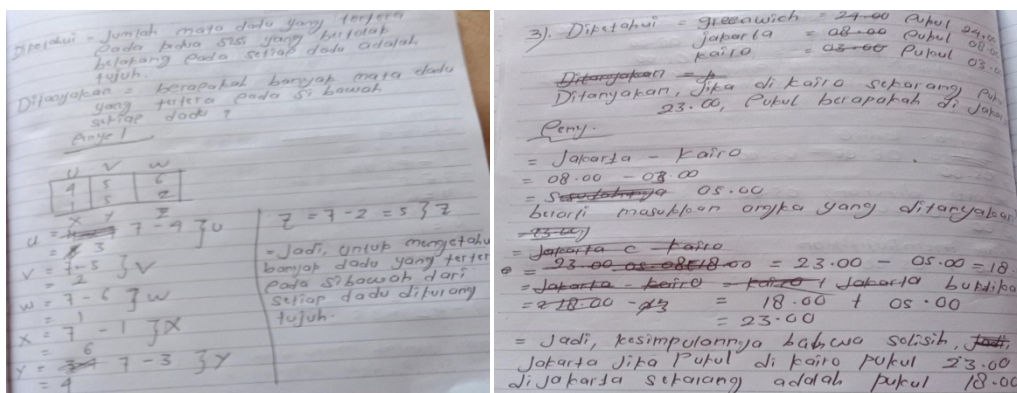 Diketahui = Jumlah mata dadu yang tertera
pada kedua sisi yang bertolak
belakang pada setiap dadu adalah
tujuh.
Ditanyakan = berapakah banyak mata dadu
yang tertera pada si bawah
setiap dadu ?
U V W
4 5 6
1 5 2
X Y Z
U = 7 - 4 } U
= 3
V = 7 - 5 } V
= 2
W = 7 - 6 } W
= 1
X = 7 - 1 } X
= 6
Y = 7 - 3 } Y
= 4
Z = 7 - 2 = 5 } Z
- Jadi, untuk mengetahu
banyak dadu yang terter
pada sibawah dari
setiap dadu dikurang
tujuh.
3). Diketahui = greenwich = 24.00 Pukul 24.00
jakarta = 08.00 Pukul 08.00
kairo = 03.00 Pukul 03.0
Ditanyakan
Ditanyakan, jika di kairo sekarang Puk
23.00, Pukul berapakah di jakar
Peny.
= Jakarta - kairo
= 08.00 - 03.00
= 05.00
berarti masukkan angka yang ditanyakan
23.00
= Jakarta - kairo
= 23.00 - 05.00 = 18.
= 18.00 + 05.00
= 23.00
= Jadi, kesimpulannya bahwa selisih, Jadi,
Jakarta Jika Pukul di kairo pukul 23.00
di Jakarta sekarang adalah pukul 18.00